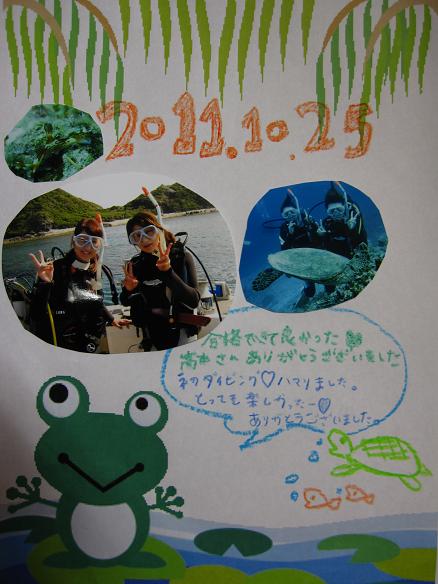 2011.10.25
合格できて良かった
高本さんありがとうございました
初ダイビング♡ハマりました。
とっても楽しかったー♡
ありがとうございました。